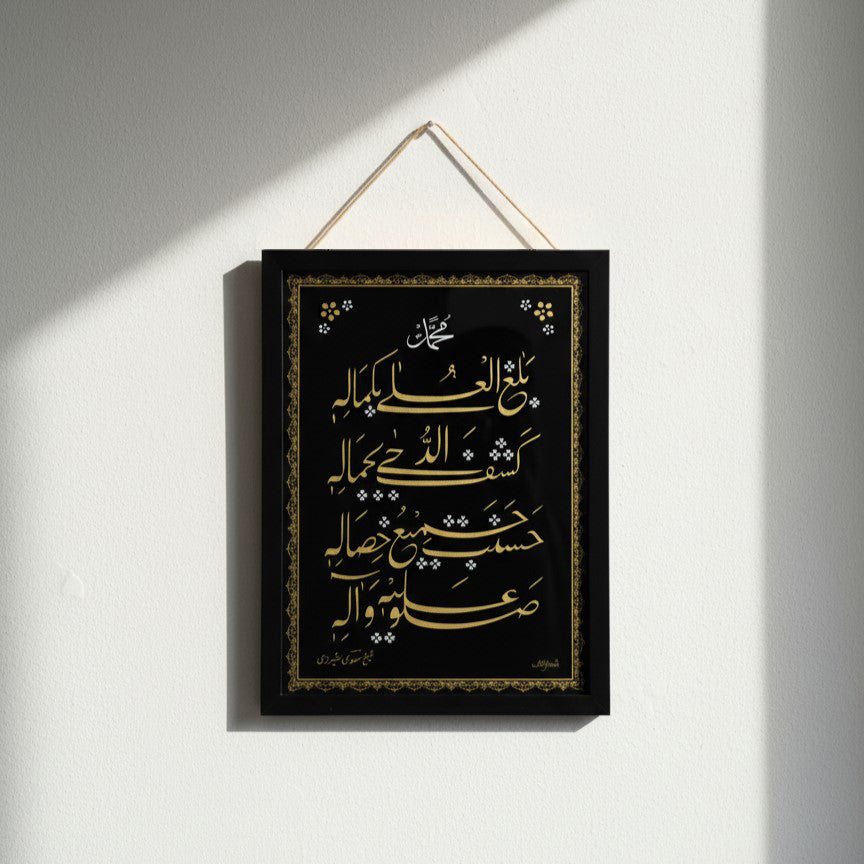 مُحَمَّد
بَلَغَ الْعُلٰى بِكَمَالِهٖ
كَشَفَ الدُّجٰى بِجَمَالِهٖ
حَسُنَتْ جَمِيْعُ خِصَالِهٖ
صَلُّوْا عَلَيْهِ وَآلِهٖ
شیخ سعدی شیرازی